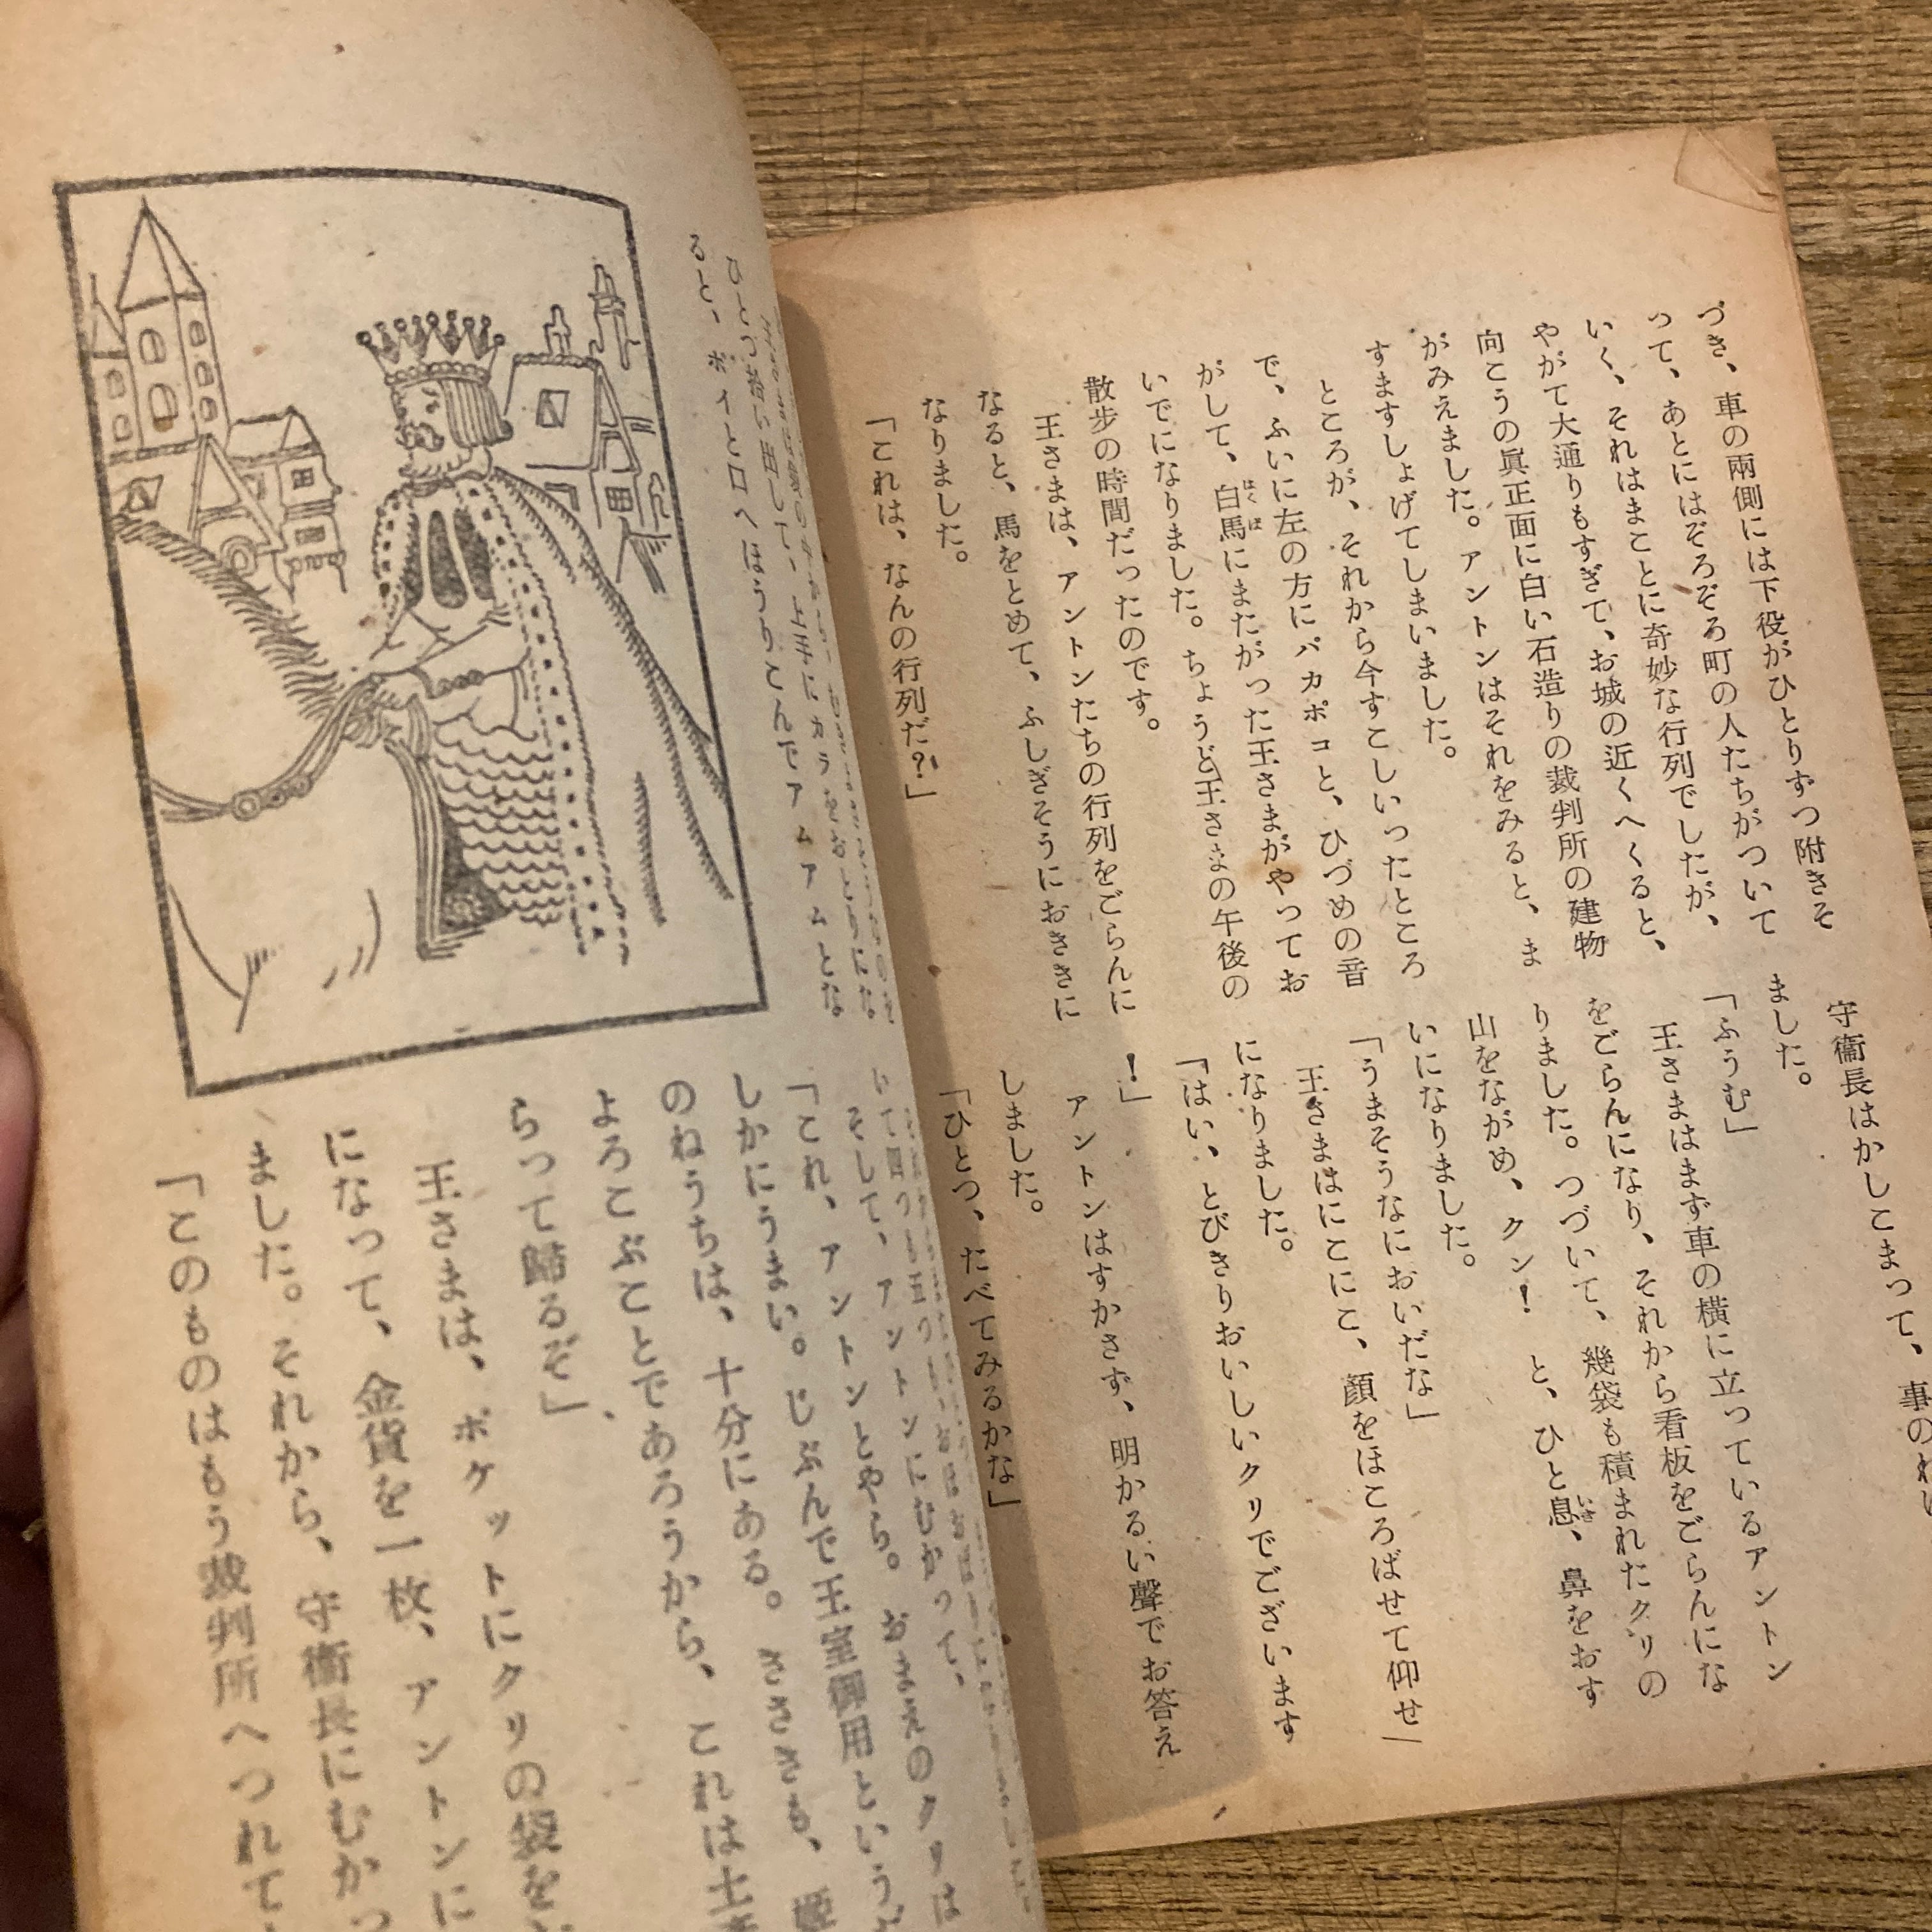 づき、車の兩側には下役がひとりずつ附きそ
って、あとにはぞろぞろ町の人たちがついて
いく、それはまことに奇妙な行列でしたが、
やがて大通りもすぎて、お城の近くへくると、
向こうの眞正面に白い石造りの裁判所の建物
がみえました。アントンはそれをみると、ま
すますしょげてしまいました。
ところが、それから今すこしいったところ
で、ふいに左の方にパカポコと、ひづめの音
がして、白馬にまたがった王さまがやってお
はくば
いでになりました。ちょうど王さまの午後の
散歩の時間だったのです。
王さまは、アントンたちの行列をごらんに
なると、馬をとめて、ふしぎそうにおききに
なりました。
「これは、なんの行列だ？」
守衞長はかしこまって、事のわけ
ました。
「ふうむ」
王さまはまず車の横に立っているアントン
をごらんになり、それから看板をごらんにな
りました。つづいて、幾袋も積まれたクリの
山をながめ、クン！　と、ひと息、鼻をおす
いき
いになりました。
「うまそうなにおいだな」
王さまはにこにこ、顏をほころばせて仰せ
になりました。
「はい、とびきりおいしいクリでございます
！」
アントンはすかさず、明かるい聲でお答え
しました。
「ひとつ、たべてみるかな」
ると、ポイと口へほうりこんでアムアムとな
そして、アントンにむかって、
「これ、アントンとやら。おまえのクリは
しかにうまい。じぶんで王室御用という
のねうちは、十分にある。ささきも、姫
よろこぶことであろうから、これは土
らって歸るぞ」
王さまは、ポケットにクリの袋を
になって、金貨を一枚、アントンに
ました。それから、守衞長にむかっ
「このものはもう裁判所へつれて